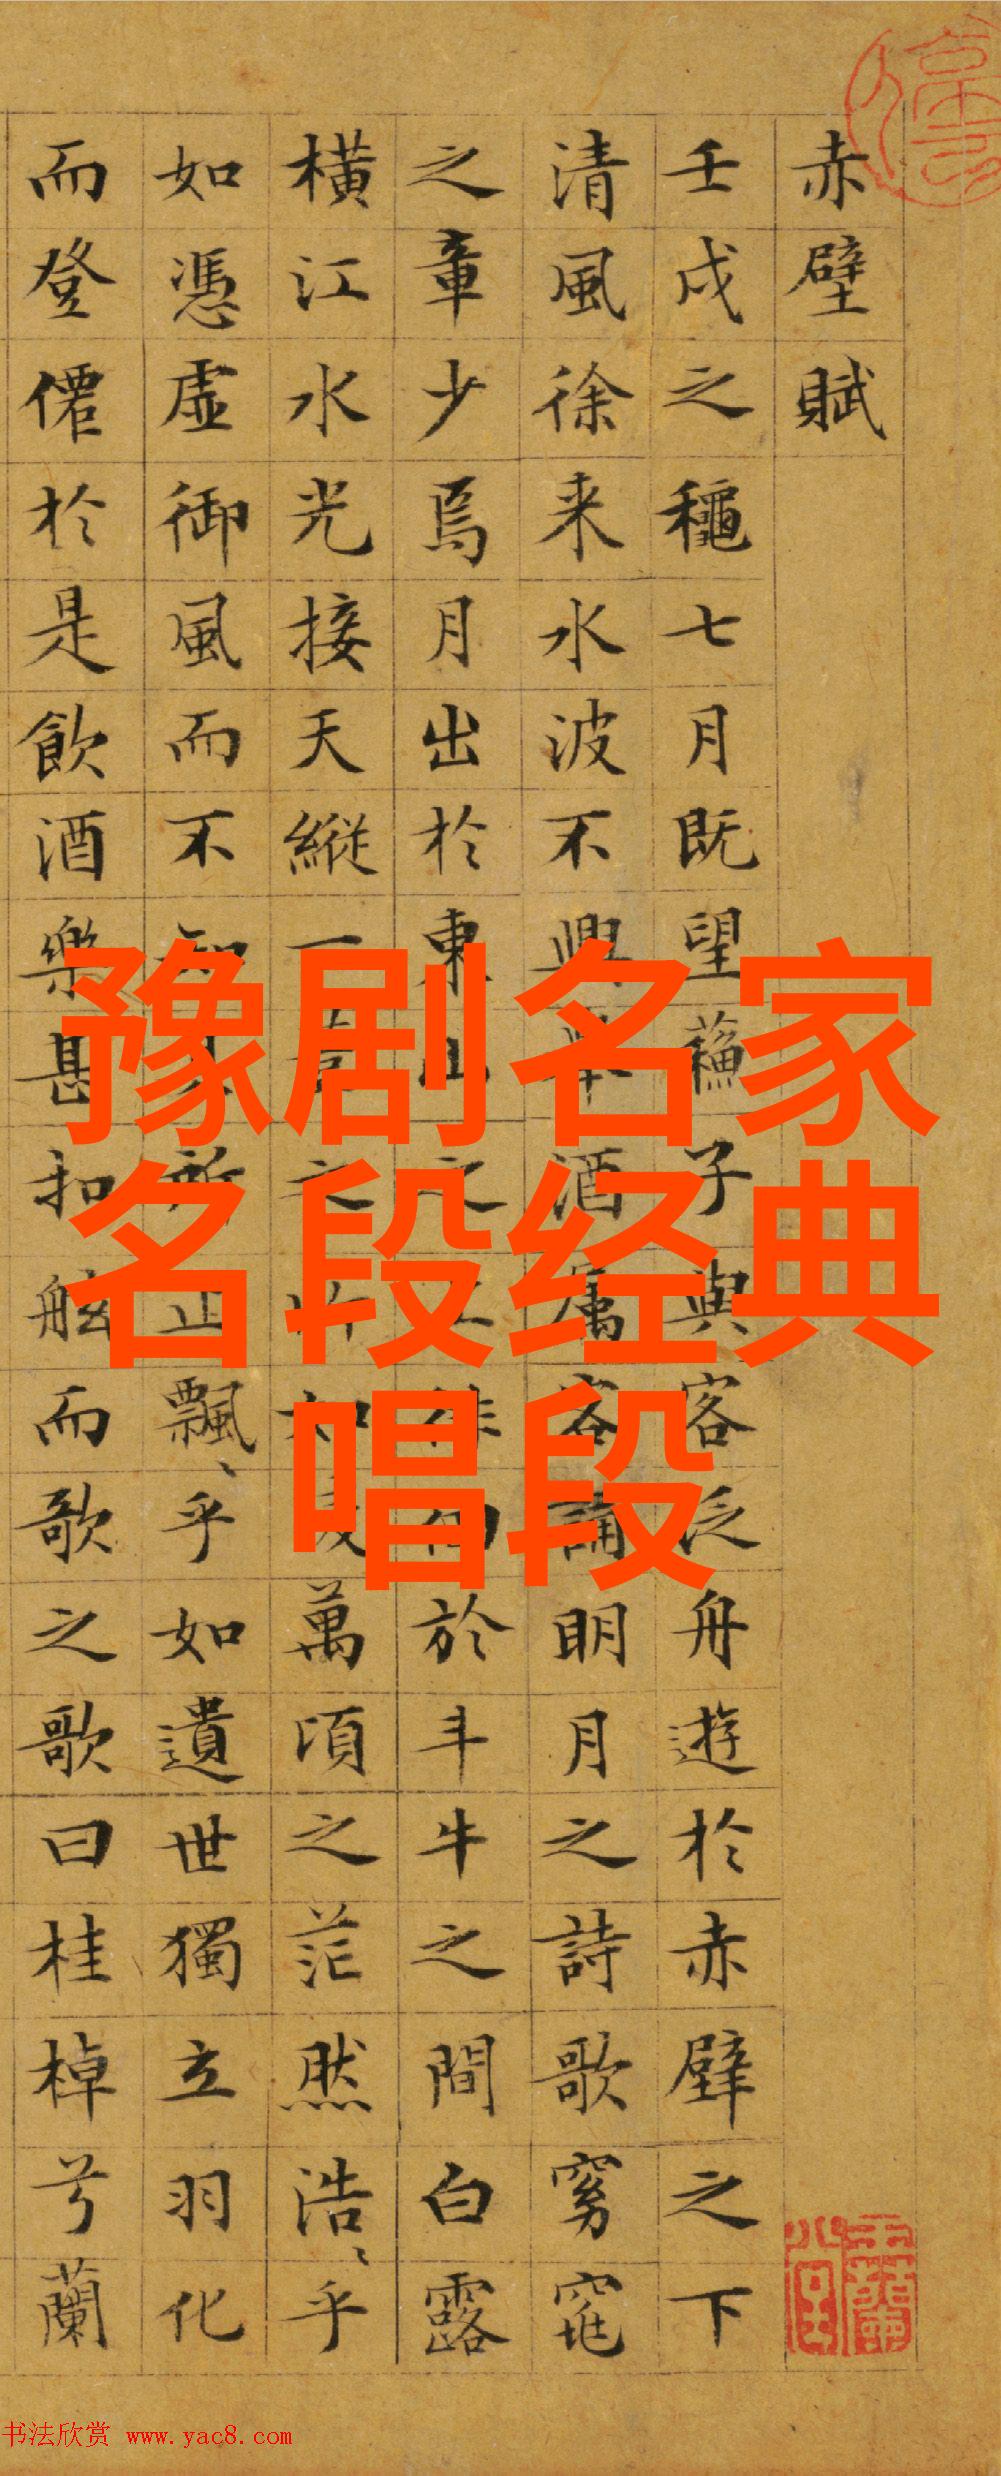 赤壁賦
壬戌之龝七月既望蘓子與客泛舟遊於赤壁之下
清風徐来水波不興舉酒属客誦明月之詩歌窈窕
之章少焉月出於東山之徘徊於斗牛之間白露
橫江水光接天縱一葦之所如萬頃之茫然浩〻乎
如憑虛御風而不知所止飄〻乎如遺世獨立羽化
而登僊於是飲酒樂甚扣舷而歌之歌曰桂棹兮蘭
豫剧名家
名段经典
唱段
书法欣赏 www.yac8.com